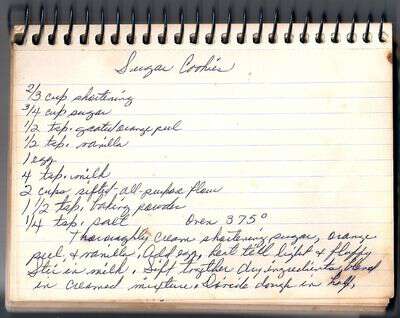 Sugar Cookies
2/3 cup shortening
3/4 cup sugar
1/2 tsp. grated orange peel
1/2 tsp. vanilla
1 egg
4 tsp. milk
2 cups sifted all-purpose flour
1 1/2 tsp. baking powder
1/4 tsp. salt Oven 375°
Thoroughly cream shortening, sugar, orange
peel, & vanilla. Add egg, beat till light & fluffy
Stir in milk. Sift together dry ingredients, blend
in creamed mixture. Divide dough in half.